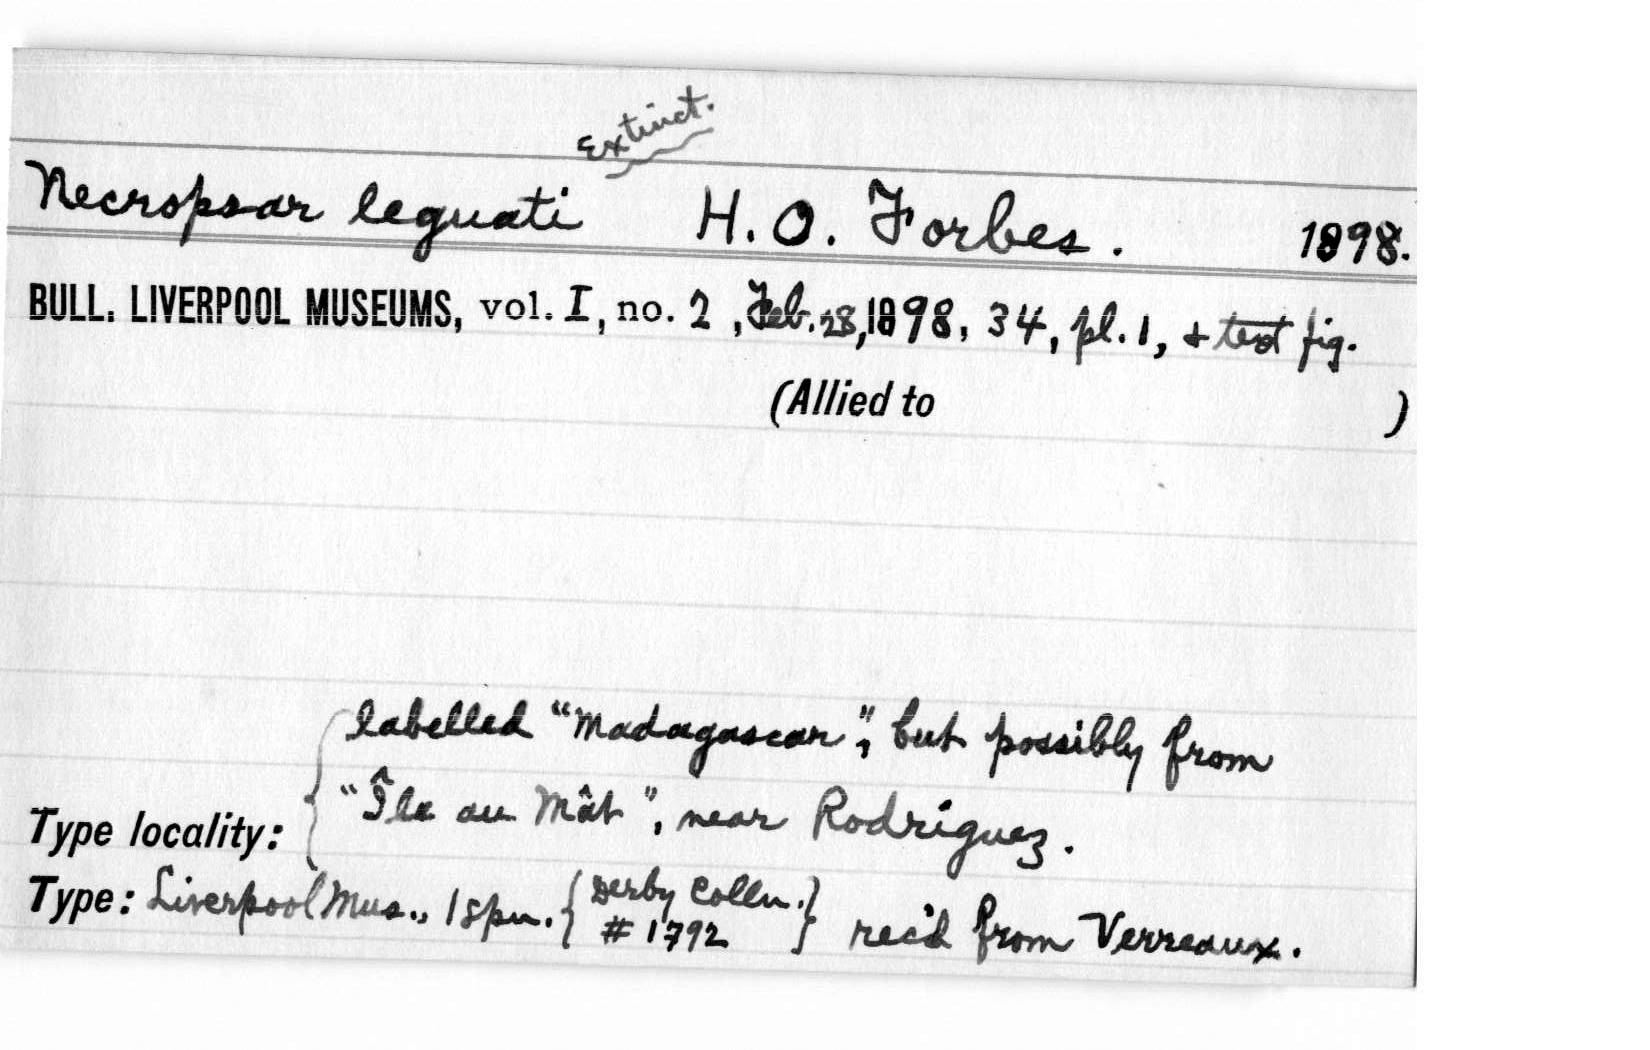 Extinct.
Necropsar leguati H. O. Forbes. 1898.
BULL. LIVERPOOL MUSEUMS, vol. I, no. 2, Feb. 28, 1898, 34, pl. 1, & text fig.
(Allied to )
labelled "Madagascar", but possibly from
"Île au Mât", near Rodriguez.
Type locality:
Type: Liverpool Mus., 1 spn. { Derby Colln. } rec'd from Verreaux.
# 1792